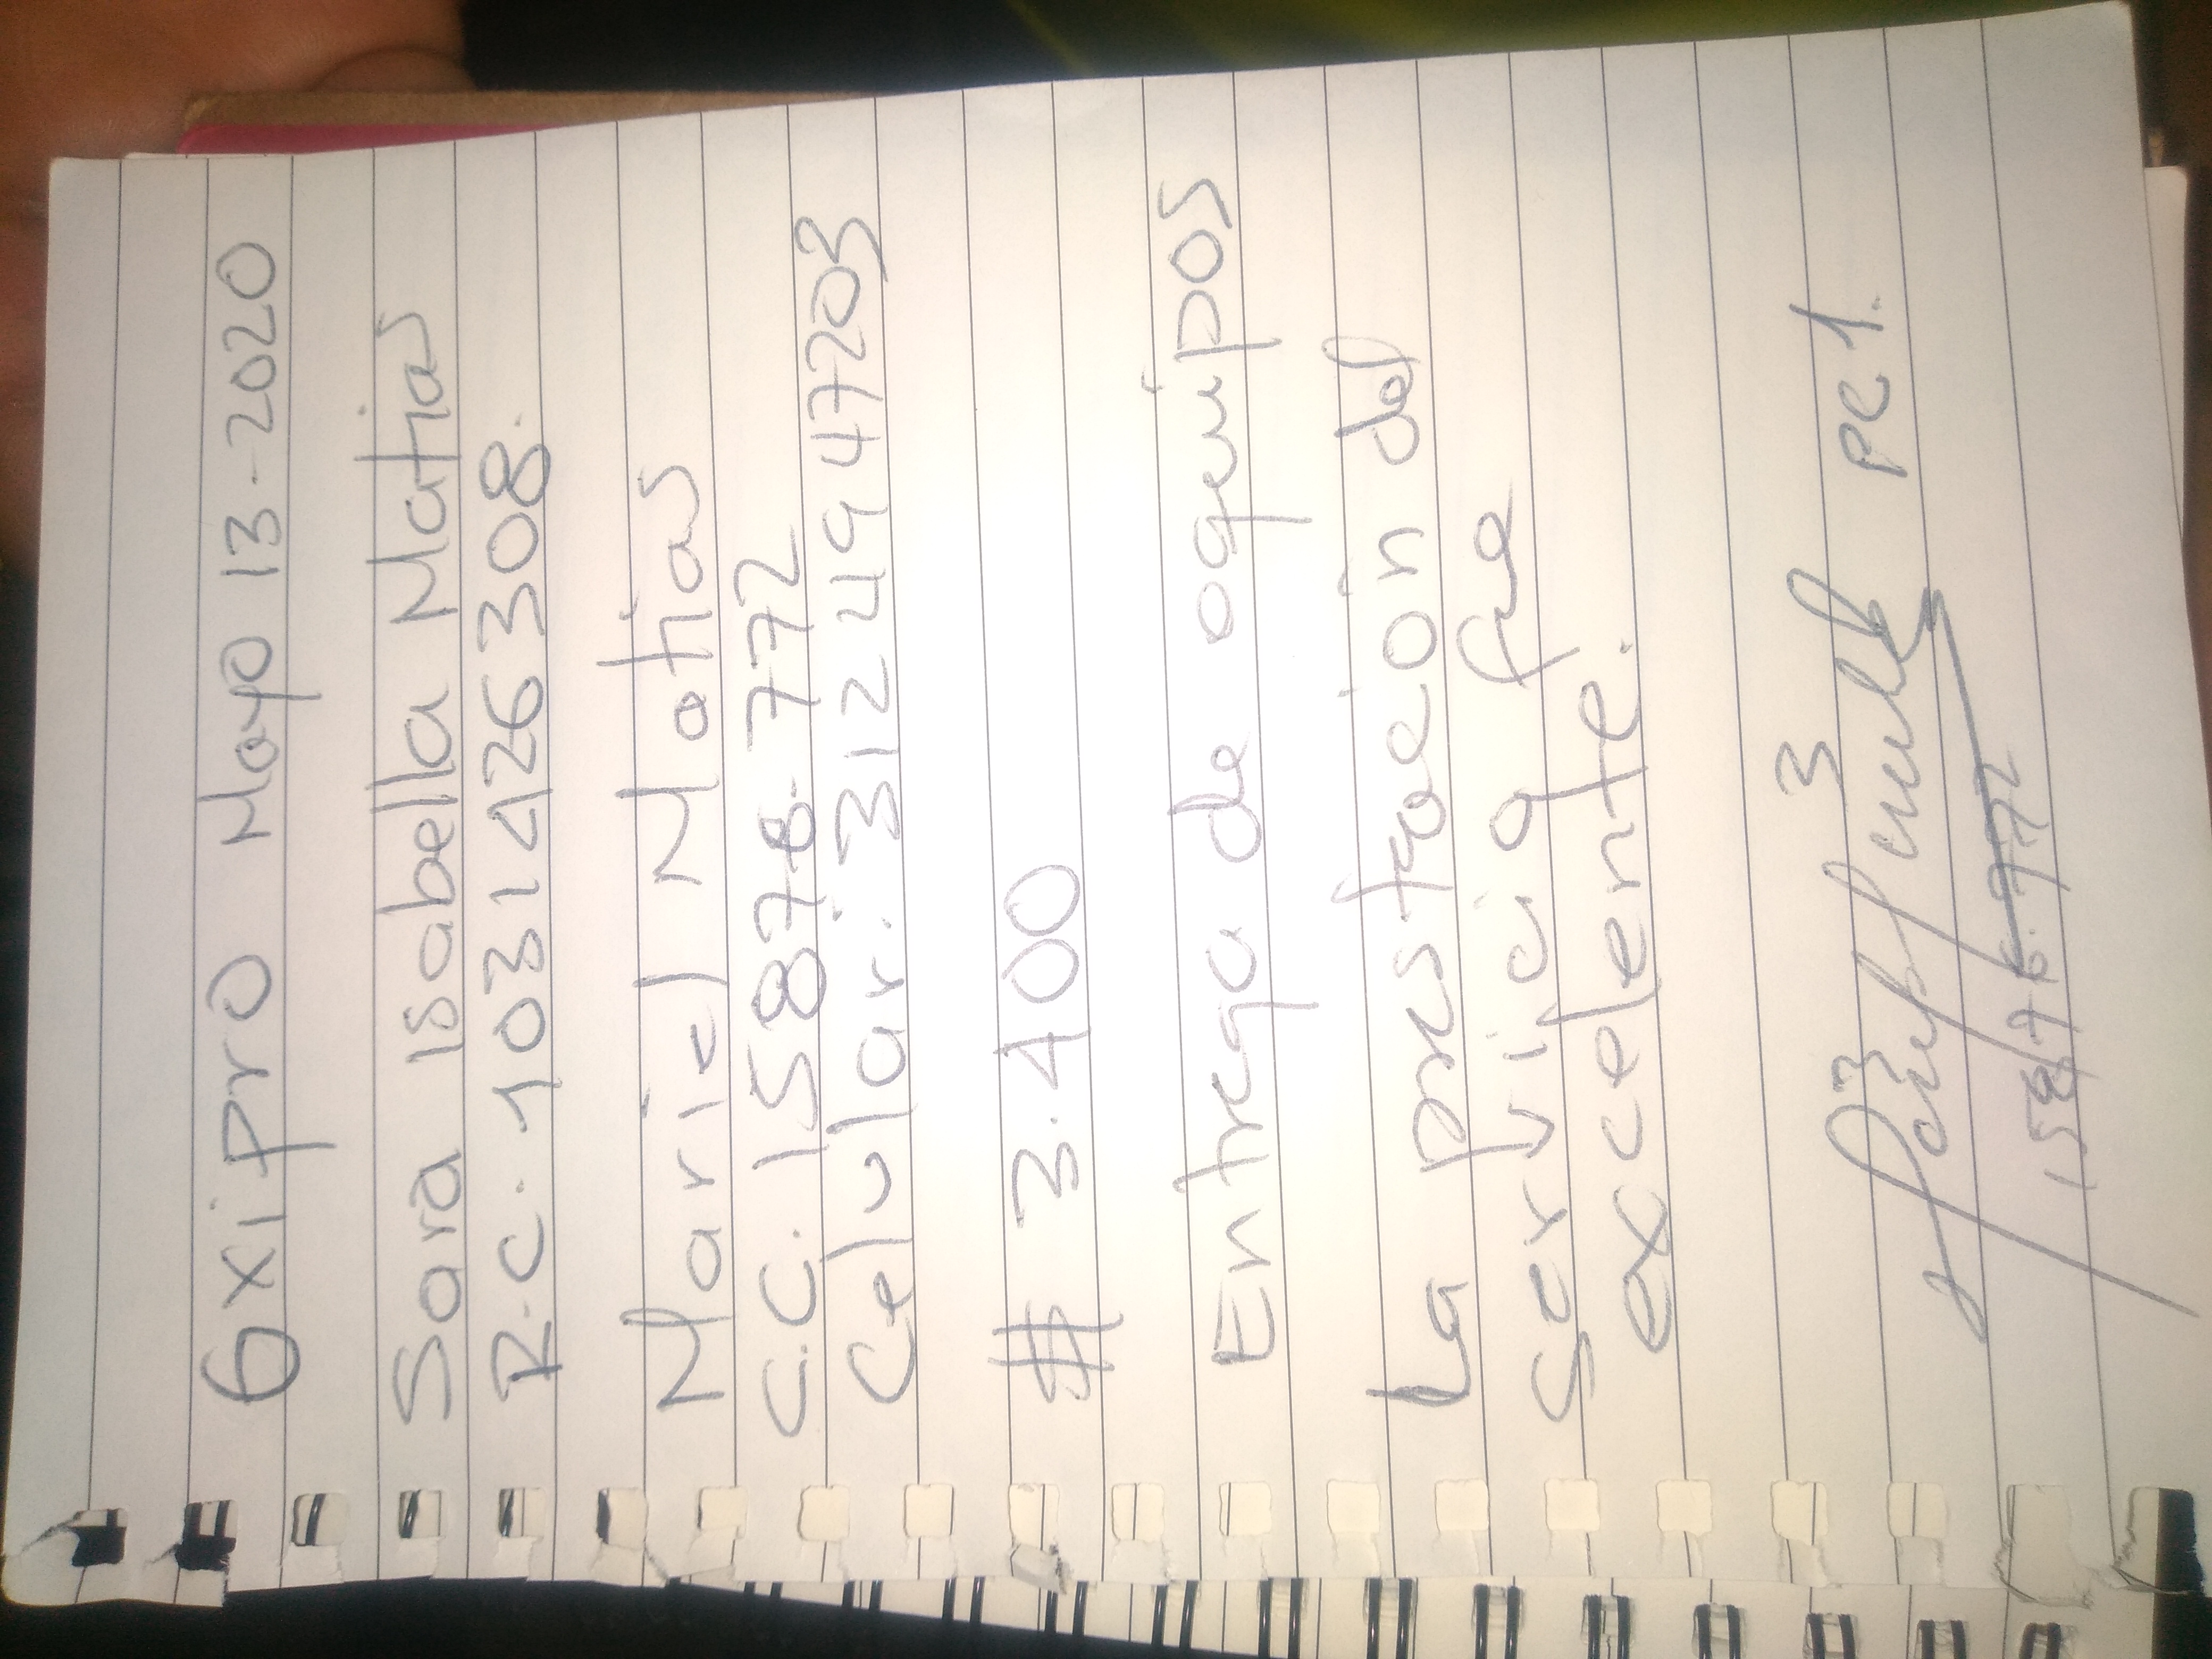 Oxipro Mayo 13-2020
Sara Isabella Matias
R.C. 1031426308.
Mariel Matias
C.C. 15878.772
Celular: 312 419 4703
# 3.400
Entrega de equipos
La prestación del
servicio fue
excelente.
3
pc1.
15878.772